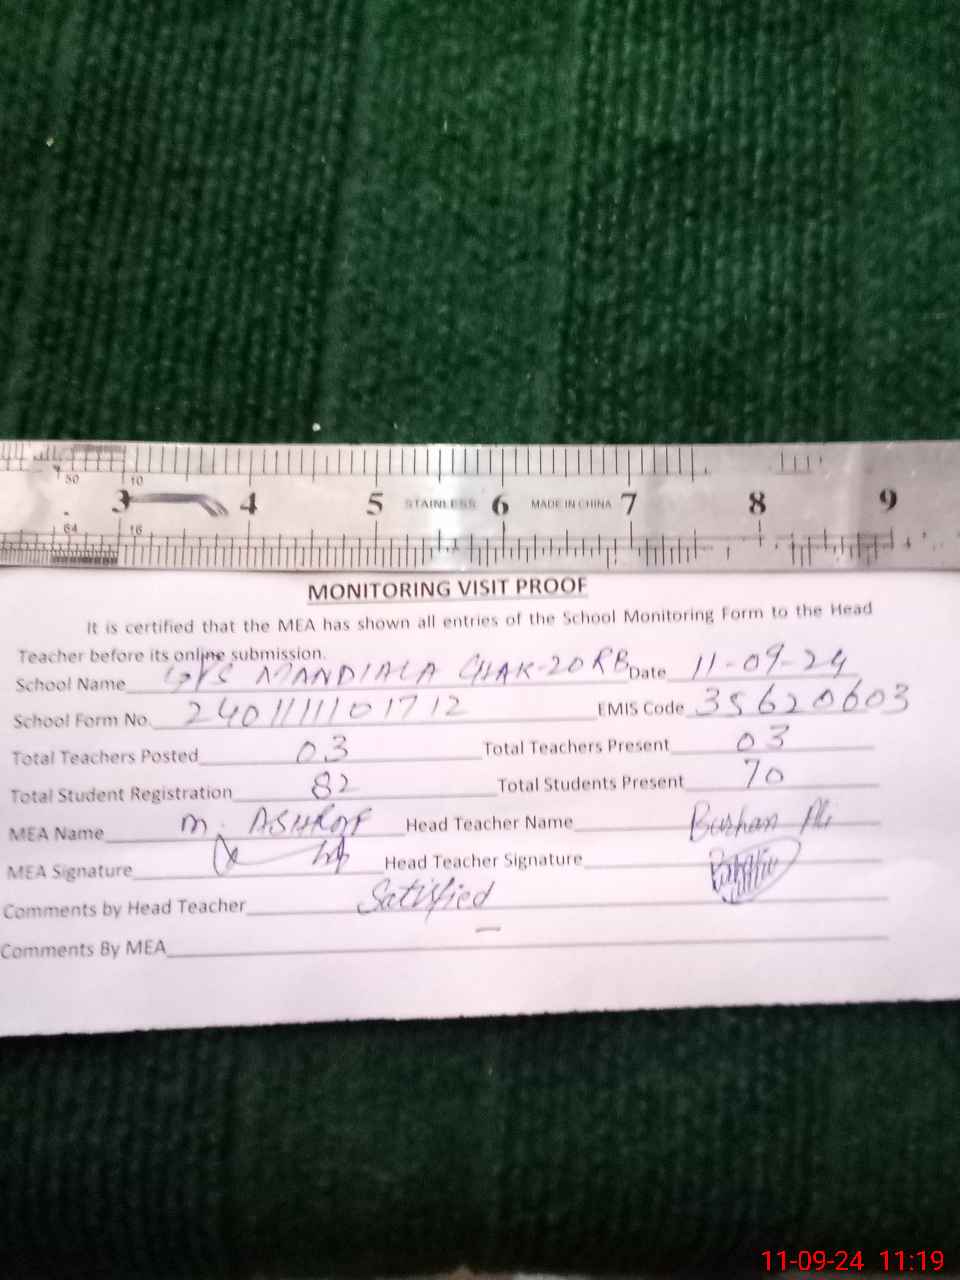 50 10
3 4 5 STAINLESS 6 MADE IN CHINA 7 8 9
64 16
MONITORING VISIT PROOF
It is certified that the MEA has shown all entries of the School Monitoring Form to the Head
Teacher before its online submission.
School Name GPS MANDIALA CHAK-20RB Date 11-09-24
School Form No. 2401111101712 EMIS Code 35620603
Total Teachers Posted 03 Total Teachers Present 03
Total Student Registration 82 Total Students Present 70
MEA Name M. ASHRAF Head Teacher Name Ali
MEA Signature Head Teacher Signature
Comments by Head Teacher Satisfied
Comments By MEA —
11-09-24 11:19